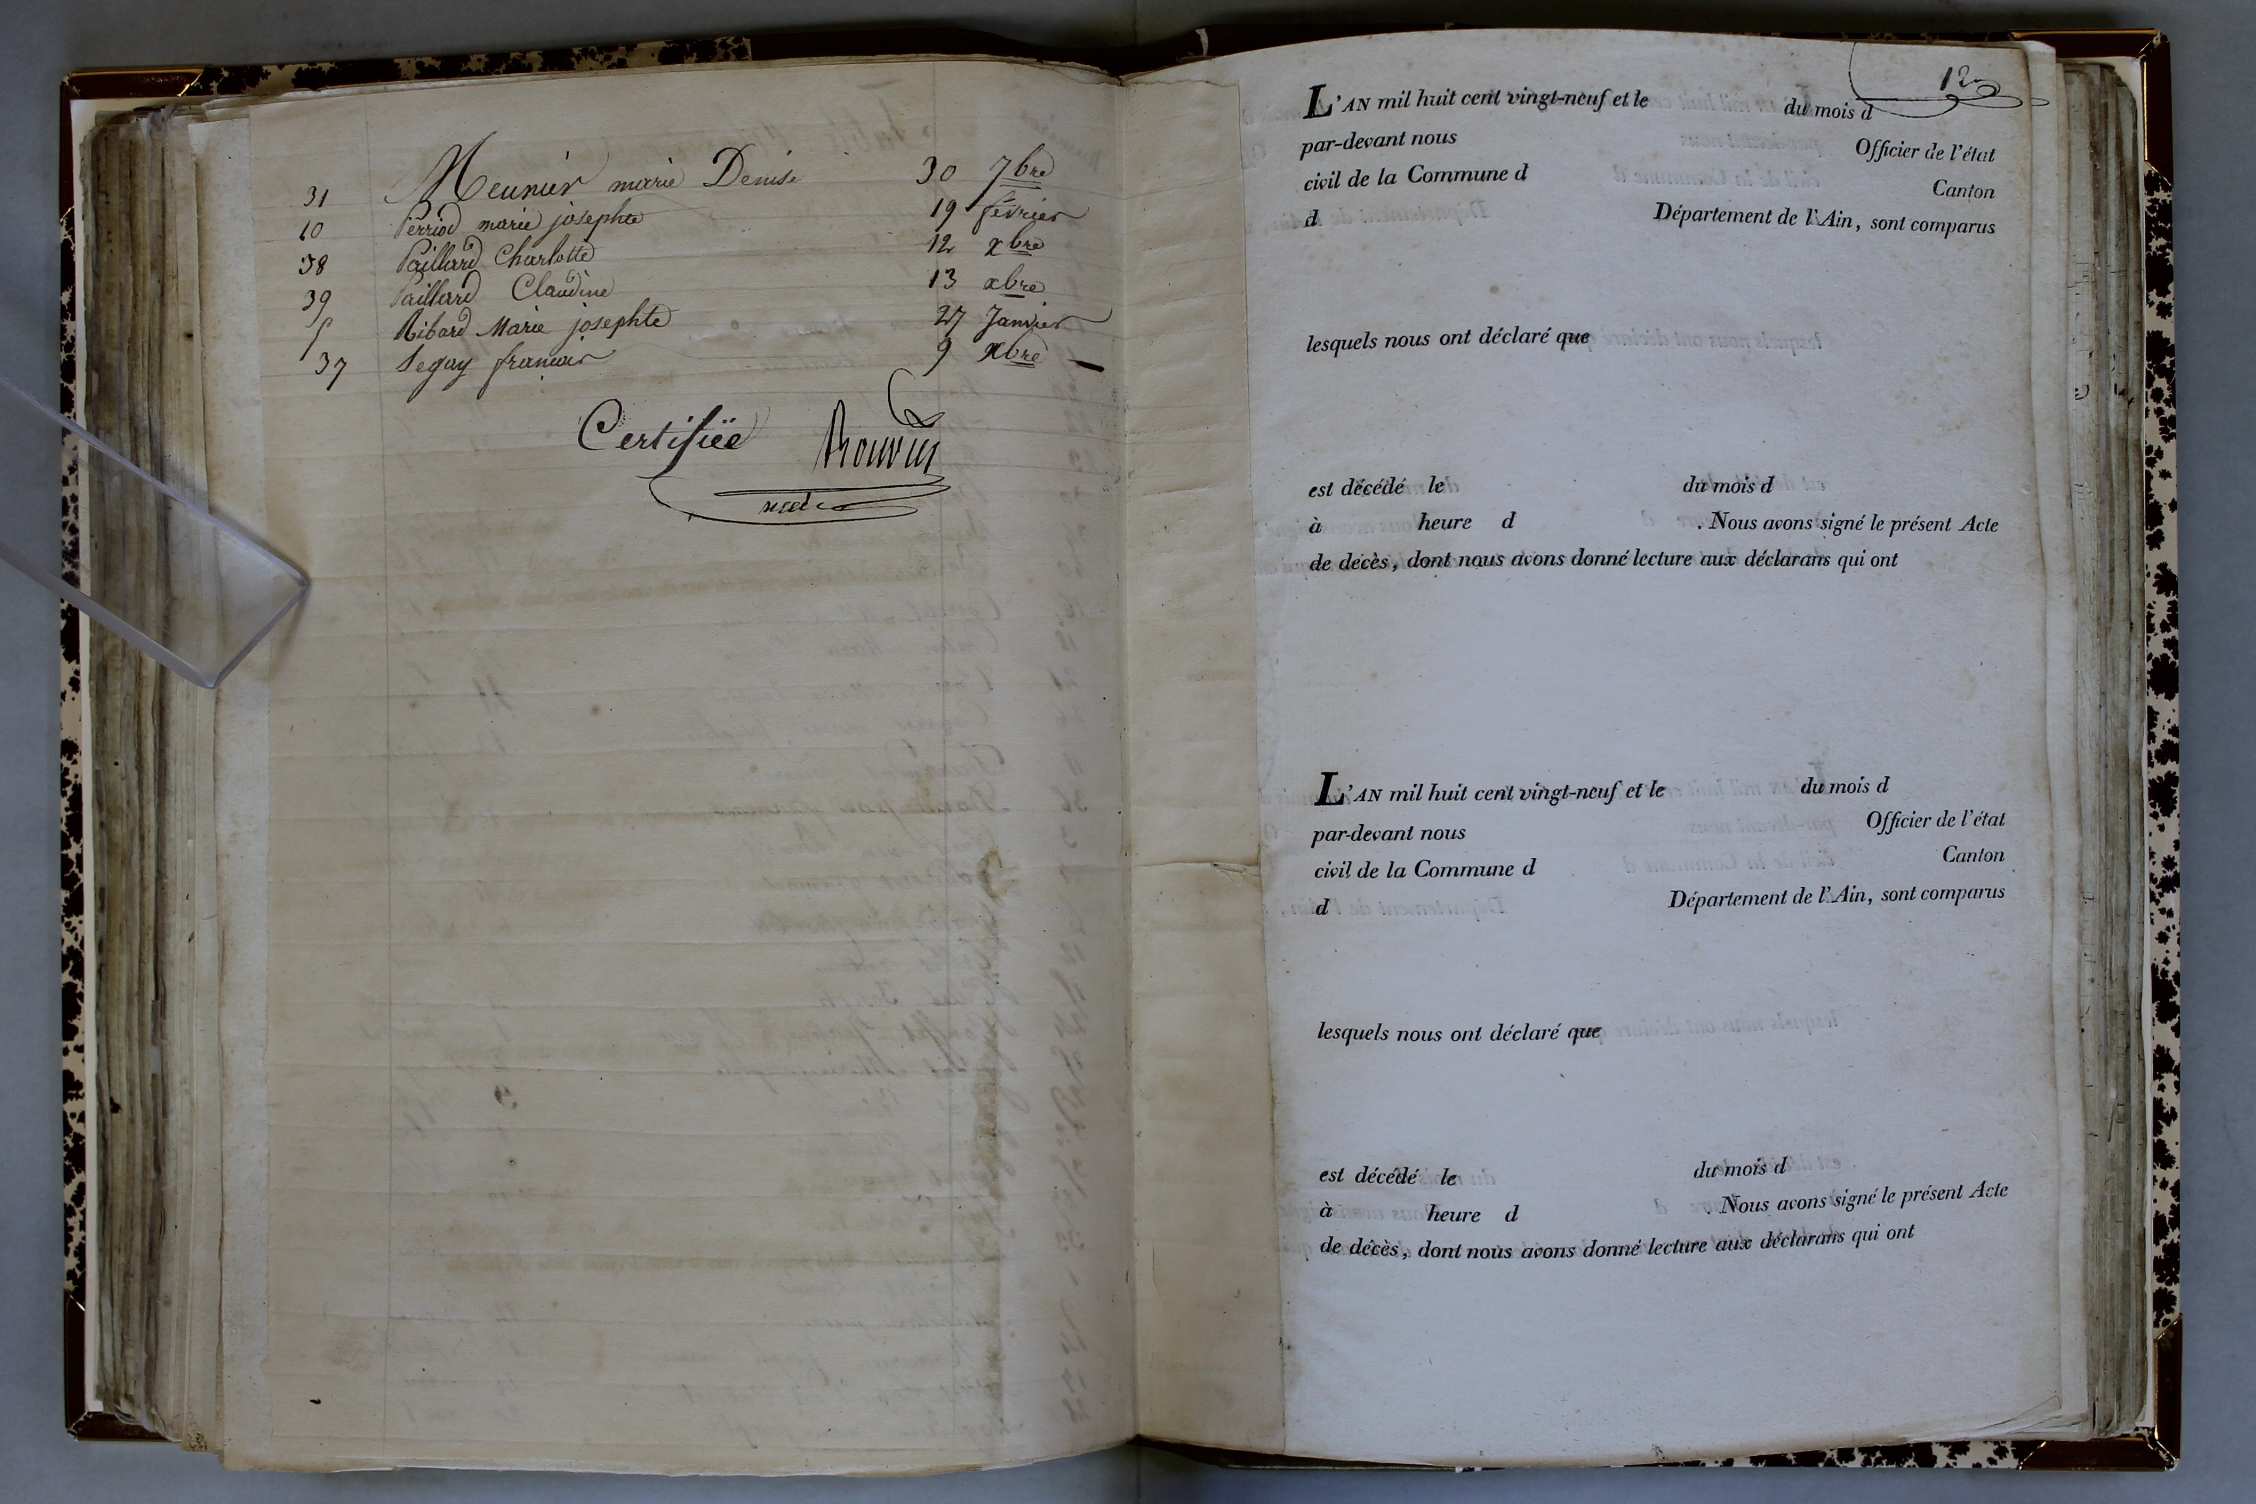 31 Meunier marie Denise 30 7bre
10 Perriod marie josephte 19 février
38 Paillard Charlotte 12 xbre
39 Paillard Claudine 13 xbre
5 Ribard Marie josephte 27 Janvier
37 Segay francois 9 xbre
Certifiée
12
L'AN mil huit cent vingt-neuf et le du mois d
par-devant nous Officier de l'état
civil de la Commune d Canton
d Département de l'Ain, sont comparus
lesquels nous ont déclaré que
est décédé le du mois d
à heure d . Nous avons signé le présent Acte
de décès, dont nous avons donné lecture aux déclarans qui ont
L'AN mil huit cent vingt-neuf et le du mois d
par-devant nous Officier de l'état
civil de la Commune d Canton
d Département de l'Ain, sont comparus
lesquels nous ont déclaré que
est décédé le du mois d
à heure d . Nous avons signé le présent Acte
de décès, dont nous avons donné lecture aux déclarans qui ont